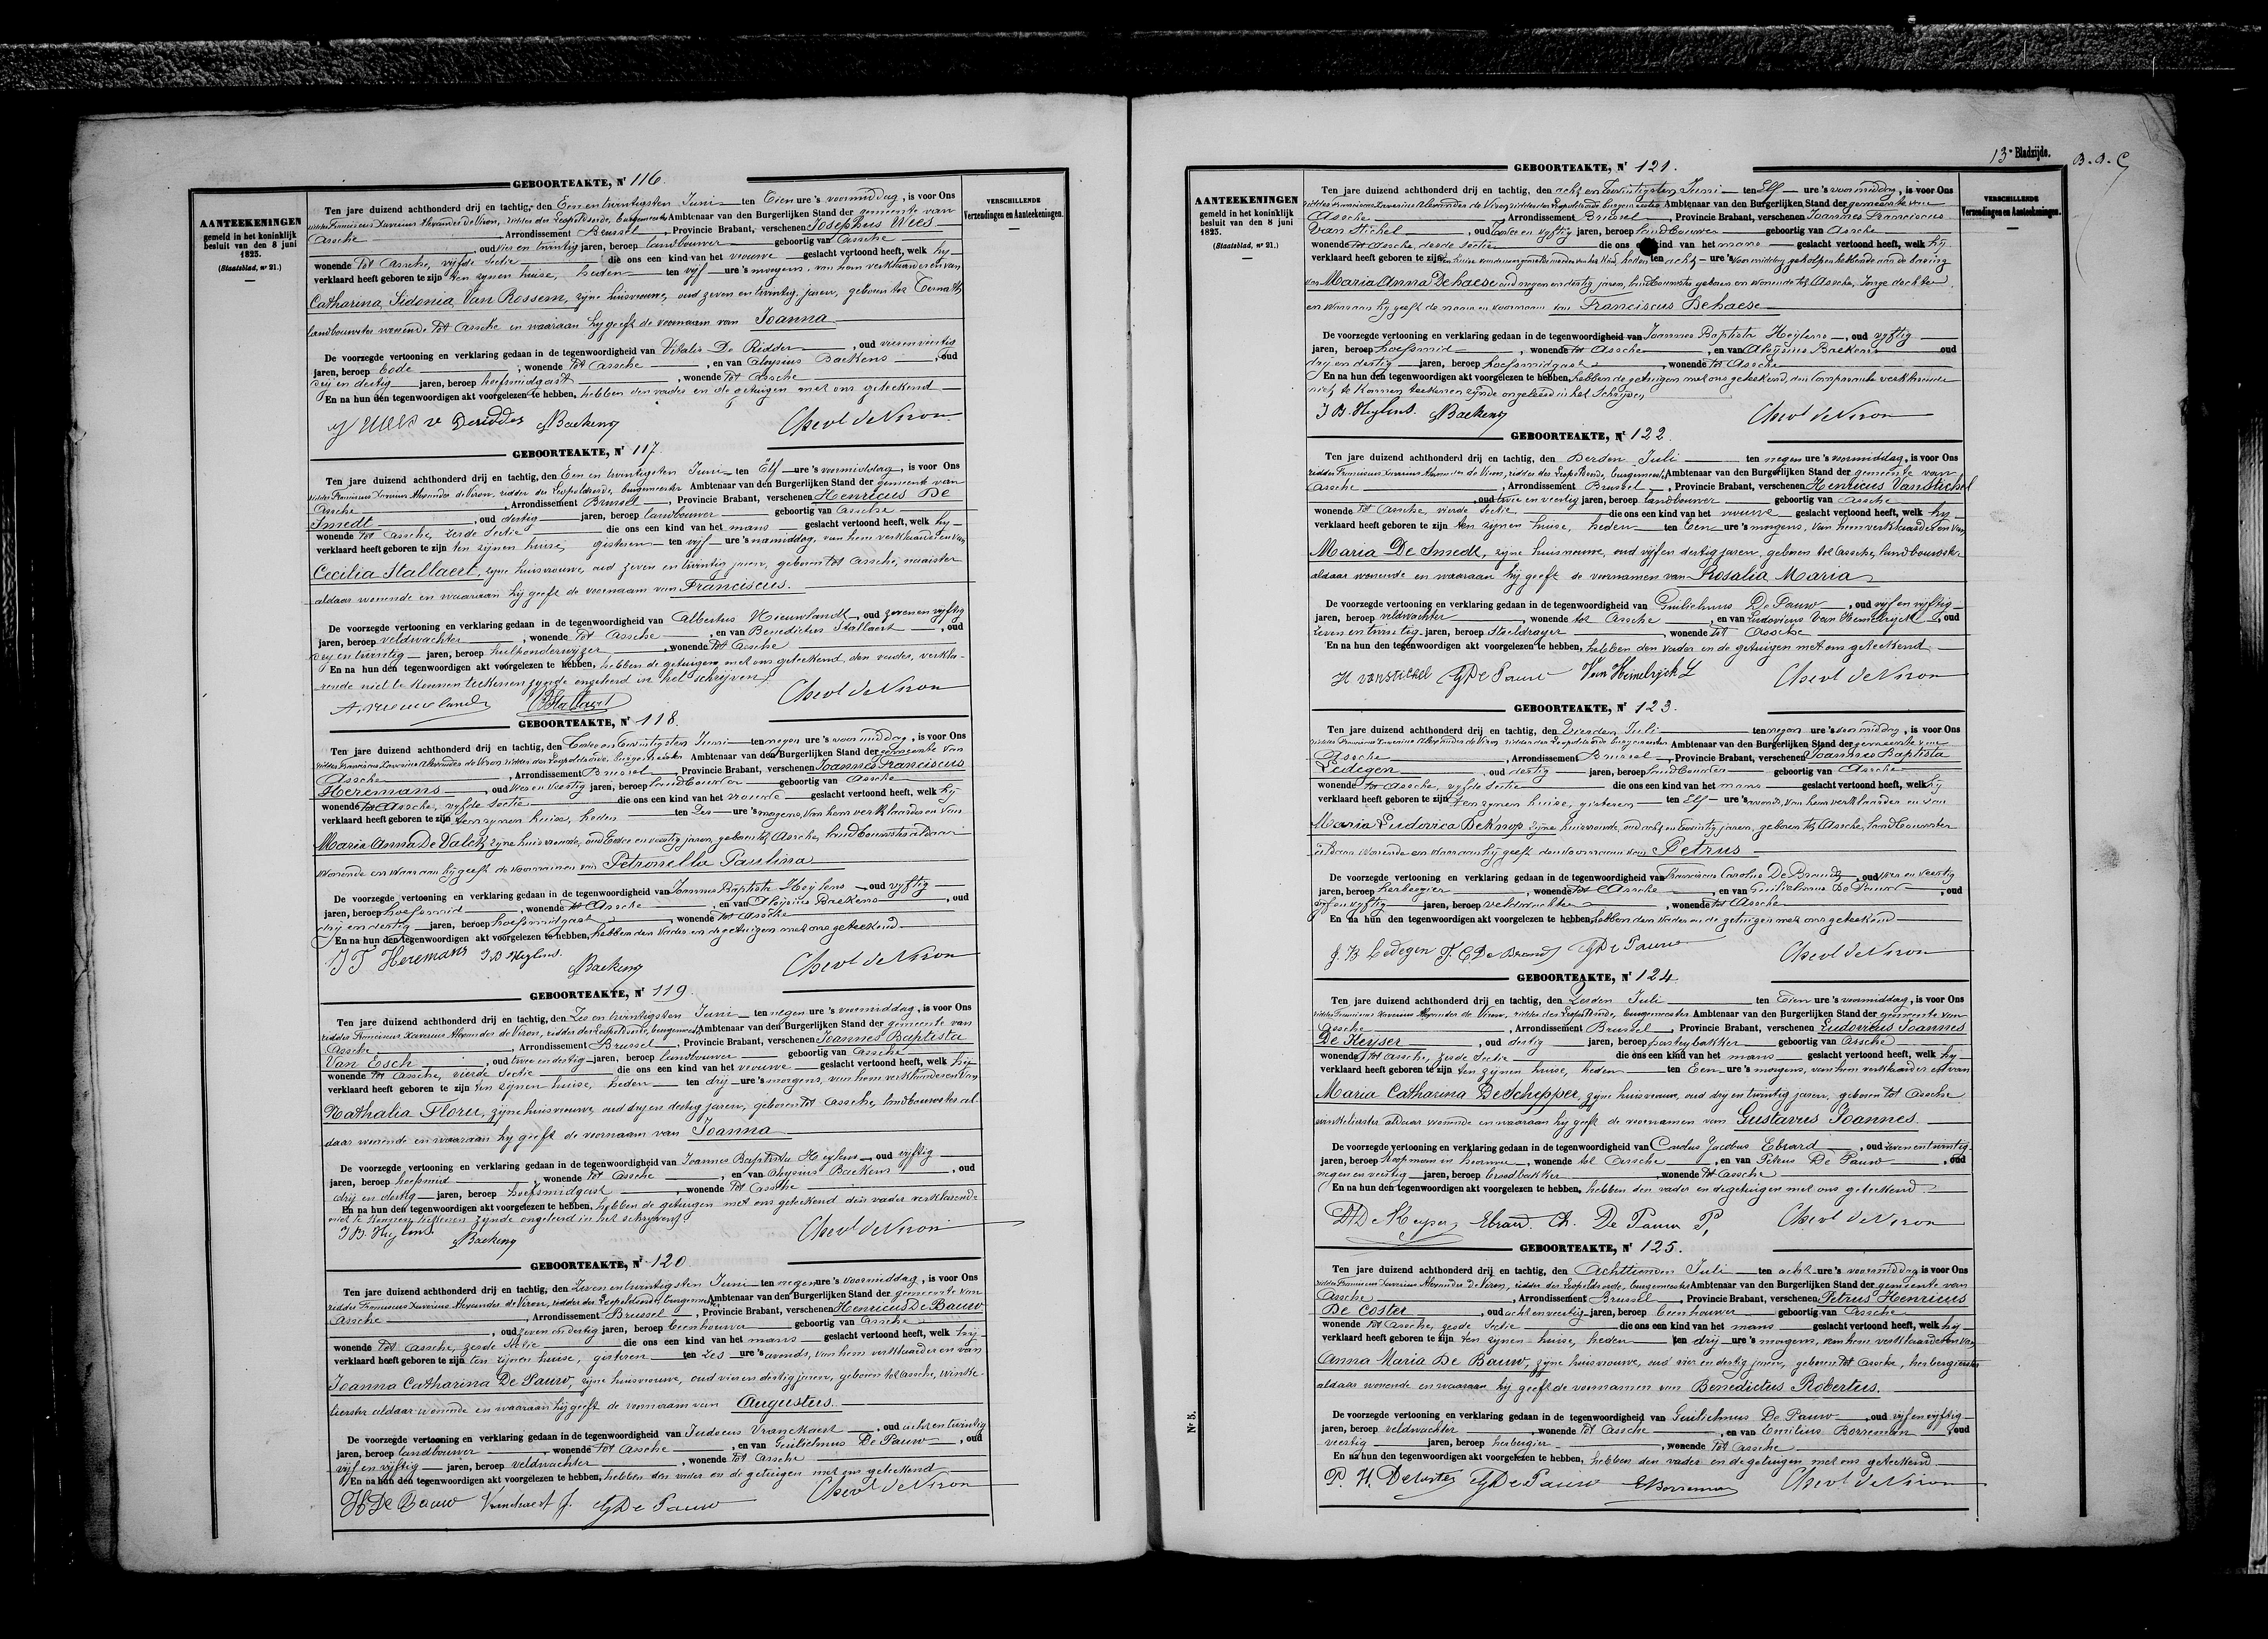 GEBOORTEAKTE, Nr 116.
AANTEEKENINGEN
gemeld in het koninklijk
besluit van den 8 juni
1823.
(Staatsblad, nr 21.)
VERSCHILLENDE
Verzendingen en Aanteekeningen.
Ten jare duizend achthonderd drij en tachtig, den Een en twintigsten Juni ten Tien ure 's voormiddag, is voor Ons
ridder Franciscus Xaverius Alexander de Viron, ridder der Leopoldsorde, burgemeester Ambtenaar van den Burgerlijken Stand der gemeente van
Assche, Arrondissement Brussel, Provincie Brabant, verschenen Josephus Wees
, oud vier en twintig jaren, beroep landbouwer geboortig van Assche
wonende tot Assche, vijfde sectie die ons een kind van het vrouwe geslacht vertoond heeft, welk hy
verklaard heeft geboren te zijn ten zynen huise, heden ten vyf ure 's morgens, van hem verklaarder en van
Catharina Sidonia Van Rossem, zyne huisvrouwe, oud zeven en twintig jaren, geboren tot Ternath,
landbouwster wonende tot Assche en waaraan hy geeft de voornaam van Joanna
De voorzegde vertooning en verklaring gedaan in de tegenwoordigheid van Vitalis De Ridder, oud vier en veertig
jaren, beroep bode, wonende tot Assche, en van Aloysius Baekens, oud
drij en dertig jaren, beroep hoefsmidgast, wonende tot Assche
En na hun den tegenwoordigen akt voorgelezen te hebben, hebben den vader en de getuigen met ons geteekend
J Wees V Deridder ABaekens Chevl de Viron
GEBOORTEAKTE, Nr 117.
Ten jare duizend achthonderd drij en tachtig, den Een en twintigsten Juni ten Elf ure 's voormiddag, is voor Ons
ridder Franciscus Xaverius Alexander de Viron, ridder der Leopoldsorde, burgemeester Ambtenaar van den Burgerlijken Stand der gemeente van
Assche, Arrondissement Brussel, Provincie Brabant, verschenen Henricus De
Smedt, oud dertig jaren, beroep landbouwer geboortig van Assche
wonende tot Assche, zesde sectie die ons een kind van het mans geslacht vertoond heeft, welk hy
verklaard heeft geboren te zijn ten zynen huise, gisteren ten vijf ure 's namiddag, van hem verklaarder en van
Cecilia Stallaert, zyne huisvrouwe, oud zeven en twintig jaren, geboren tot Assche, naaister
aldaar wonende en waaraan hij geeft de voornaam van Franciscus.
De voorzegde vertooning en verklaring gedaan in de tegenwoordigheid van Albertus Nieuwlandt, oud zeven en vyftig
jaren, beroep veldwachter, wonende tot Assche, en van Benedictus Stallaert, oud
drij en twintig jaren, beroep hulponderwijzer, wonende tot Assche
En na hun den tegenwoordigen akt voorgelezen te hebben, hebben de getuigen met ons geteekend, den vader, verkla-
rende niet te kunnen teekenen zynde ongeleerd in het schrijven
A. nieuwlandt BStallaert Chevl de Viron
GEBOORTEAKTE, Nr 118.
Ten jare duizend achthonderd drij en tachtig, den en Twintigsten Juni ten negen ure 's voormiddag, is voor Ons
ridder Franciscus Xaverius Alexander de Viron ridder der Leopoldsorde, burgemeester Ambtenaar van den Burgerlijken Stand der gemeente van
Assche, Arrondissement Brussel, Provincie Brabant, verschenen Joannes Franciscus
Heremans, oud vier en veertig jaren, beroep landbouwer geboortig van Assche
wonende tot Assche, vyfde sectie die ons een kind van het vrouwe geslacht vertoond heeft, welk hij
verklaard heeft geboren te zijn ten zynen huise, heden ten zes ure 's morgens, van hem verklaarder en van
Maria Anna De Valck zyne huisvrouwe, oud en veertig jaren, geboren tot Assche, landbouwster aldaar
wonende en waaraan hij geeft de voornamen van Petronella Paulina
De voorzegde vertooning en verklaring gedaan in de tegenwoordigheid van Joannes Baptista Heylens, oud vyftig
jaren, beroep hoefsmid, wonende tot Assche, en van Aloysius Baekens, oud
drij en dertig jaren, beroep hoefsmidgast, wonende tot Assche
En na hun den tegenwoordigen akt voorgelezen te hebben, hebben den vader en de getuigen met ons geteekend
J F Heremans J. B Heylens. ABaekens Chevl de Viron
GEBOORTEAKTE, Nr 119.
Ten jare duizend achthonderd drij en tachtig, den Zes en twintigsten Juni ten negen ure 's voormiddag, is voor Ons
ridder Franciscus Xaverius Alexander de Viron, ridder der Leopoldsorde, burgemeester Ambtenaar van den Burgerlijken Stand der gemeente van
Assche, Arrondissement Brussel, Provincie Brabant, verschenen Joannes Baptista
Van Esch, oud twee en dertig jaren, beroep landbouwer geboortig van Assche
wonende tot Assche, vierde sectie die ons een kind van het vrouwe geslacht vertoond heeft, welk hij
verklaard heeft geboren te zijn ten zynen huise, heden ten drij ure 's morgens, van hem verklaarder en van
Nathalia Floru, zyne huisvrouwe, oud drij en dertig jaren, geboren tot Assche, landbouwster al-
daar wonende en waaraan hy geeft de voornaam van Joanna
De voorzegde vertooning en verklaring gedaan in de tegenwoordigheid van Joannes Baptista Heylens, oud vijftig
jaren, beroep hoefsmid, wonende tot Assche, en van Aloysius Baekens, oud
drij en dertig jaren, beroep hoefsmidgast, wonende tot Assche
En na hun den tegenwoordigen akt voorgelezen te hebben, hebben de getuigen met ons geteekend den vader verklarende
niet te kunnen teekenen zynde ongeleerd in het schrijven
J B. Heylens. ABaekens Chevl de Viron
GEBOORTEAKTE, Nr 120.
Ten jare duizend achthonderd drij en tachtig, den Zeven en twintigsten Juni ten negen ure 's voormiddag, is voor Ons
ridder Franciscus Xaverius Alexander de Viron, ridder der Leopoldsorde, burgemeester Ambtenaar van den Burgerlijken Stand der gemeente van
Assche, Arrondissement Brussel, Provincie Brabant, verschenen Henricus De Bauw
, oud zeven en dertig jaren, beroep beenhouwer geboortig van Assche
wonende tot Assche, zesde sectie die ons een kind van het mans geslacht vertoond heeft, welk hij
verklaard heeft geboren te zijn ten zijnen huise, gisteren ten zes ure 's avonds, van hem verklaarder en van
Joanna Catharina De Pauw, zyne huisvrouwe, oud vier en dertig jaren, geboren tot Assche, winke-
lierster aldaar wonende en waaraan hij geeft de voornaam van Augustus.
De voorzegde vertooning en verklaring gedaan in de tegenwoordigheid van Judocus Vranckaert, oud acht en twintig
jaren, beroep landbouwer, wonende tot Assche, en van Guilielmus De Pauw, oud
vijf en vijftig jaren, beroep veldwachter, wonende tot Assche
En na hun den tegenwoordigen akt voorgelezen te hebben, hebben den vader en de getuigen met ons geteekend
H De Bauw J. G De Pauw Chevl de Viron
13e Bladzijde.
GEBOORTEAKTE, Nr 121.
AANTEEKENINGEN
gemeld in het koninklijk
besluit van den 8 juni
1823.
(Staatsblad, nr 21.)
VERSCHILLENDE
Verzendingen en Aanteekeningen.
Ten jare duizend achthonderd drij en tachtig, den acht en Twintigsten Juni ten Elf ure 's voormiddag, is voor Ons
ridder Franciscus Xaverius Alexander de Viron ridder der Leopoldsorde burgemeester Ambtenaar van den Burgerlijken Stand der gemeente van
Assche, Arrondissement Brussel, Provincie Brabant, verschenen Joannes Franciscus
Van Stichel, oud en vyftig jaren, beroep landbouwer geboortig van Assche
wonende tot Assche, derde sectie die ons een kind van het mans geslacht vertoond heeft, welk hij
verklaard heeft geboren te zijn ten huise van de moeder van het kind, heden ten acht ure 's voormiddag
van Maria Anna Dehaese oud negen en dertig jaren, landbouwster geboren en wonende tot Assche, Jonge dochter
en waaraan hij geeft de naam en voornaam van Franciscus Dehaese
De voorzegde vertooning en verklaring gedaan in de tegenwoordigheid van Joannes Baptista Heylens, oud vyftig
jaren, beroep hoefsmid, wonende tot Assche, en van Aloysius Baekens oud
drij en dertig jaren, beroep hoefsmidgast, wonende tot Assche
En na hun den tegenwoordigen akt voorgelezen te hebben, hebben de getuigen met ons geteekend, den comparant verklarende
niet te kunnen teekenen zynde ongeleerd in het schrijven
J B. Heylens. ABaekens Chevl de Viron
GEBOORTEAKTE, Nr 122.
Ten jare duizend achthonderd drij en tachtig, den Derden Juli ten negen ure 's voormiddag, is voor Ons
ridder Franciscus Xaverius Alexander de Viron, ridder der Leopoldsorde, burgemeester Ambtenaar van den Burgerlijken Stand der gemeente van
Assche, Arrondissement Brussel, Provincie Brabant, verschenen Henricus Vanstichel
, oud twee en veertig jaren, beroep landbouwer geboortig van Assche
wonende tot Assche, vierde sectie die ons een kind van het vrouwe geslacht vertoond heeft, welk hy
verklaard heeft geboren te zijn ten zynen huise, heden ten Een ure 's morgens, van hem verklaarder en van
Maria De Smedt, zyne huisvrouwe, oud vijf en dertig jaren, geboren tot Assche, landbouwster
aldaar wonende en waaraan hij geeft de voornamen van Rosalia Maria
De voorzegde vertooning en verklaring gedaan in de tegenwoordigheid van Guilielmus De Pauw, oud vijf en vijftig
jaren, beroep veldwachter, wonende tot Assche, en van Ludovicus Van Hemelryck, oud
zeven en twintig jaren, beroep, wonende tot Assche
En na hun den tegenwoordigen akt voorgelezen te hebben, hebben den vader en de getuigen met ons geteekend
H vanstichel G De Pauw Van Hemelryck L Chevl de Viron
GEBOORTEAKTE, Nr 123.
Ten jare duizend achthonderd drij en tachtig, den Vierden Juli ten negen ure 's voormiddag, is voor Ons
ridder Franciscus Xaverius Alexander de Viron ridder der Leopoldsorde burgemeester Ambtenaar van den Burgerlijken Stand der gemeente van
Assche, Arrondissement Brussel, Provincie Brabant, verschenen Joannes Baptista
Ledegen, oud dertig jaren, beroep landbouwer geboortig van Assche
wonende tot Assche, vyfde sectie die ons een kind van het mans geslacht vertoond heeft, welk hij
verklaard heeft geboren te zijn ten zynen huise, gisteren ten Elf ure 's avonds, van hem verklaarder en van
Maria Ludovica Deknop zijne huisvrouwe, oud acht en twintig jaren, geboren tot Assche, landbouwster
aldaar wonende en waaraan hij geeft den voornaam van Petrus
De voorzegde vertooning en verklaring gedaan in de tegenwoordigheid van Franciscus Carolus De Brandt, oud vier en veertig
jaren, beroep herbergier, wonende tot Assche, en van Guilielmus De Pauw, oud
vijf en vyftig jaren, beroep veldwachter, wonende tot Assche
En na hun den tegenwoordigen akt voorgelezen te hebben, hebben den vader en de getuigen met ons geteekend
J. B Ledegen F. C De Brandt G De Pauw Chevl de Viron
GEBOORTEAKTE, Nr 124.
Ten jare duizend achthonderd drij en tachtig, den Zesden Juli ten Tien ure 's voormiddag, is voor Ons
ridder Franciscus Xaverius Alexander de Viron, ridder der Leopoldsorde, burgemeester Ambtenaar van den Burgerlijken Stand der gemeente van
Assche, Arrondissement Brussel, Provincie Brabant, verschenen Ludovicus Joannes
De Keyser, oud dertig jaren, beroep pasteybakker geboortig van Assche
wonende tot Assche, zesde sectie die ons een kind van het mans geslacht vertoond heeft, welk hy
verklaard heeft geboren te zijn ten zynen huise, heden ten Een ure 's morgens, van hem verklaarder en van
Maria Catharina De Schepper, zyne huisvrouwe, oud dry en twintig jaren, geboren tot Assche
winkelierster aldaar wonende en waaraan hy geeft de voornamen van Gustavus Joannes.
De voorzegde vertooning en verklaring gedaan in de tegenwoordigheid van Carolus Jacobus Ebrard, oud zeven en twintig
jaren, beroep koopman in, wonende tot Assche, en van Petrus De Pauw, oud
negen en veertig jaren, beroep broodbakker, wonende tot Assche
En na hun den tegenwoordigen akt voorgelezen te hebben, hebben den vader en de getuigen met ons geteekend
De Keyser Ebrard Ch. De Pauw P, Chevl de Viron
GEBOORTEAKTE, Nr 125.
Ten jare duizend achthonderd drij en tachtig, den Achttienden Juli ten acht ure 's voormiddag is voor Ons
ridder Franciscus Xaverius Alexander De Viron, ridder der Leopoldsorde, burgemeester Ambtenaar van den Burgerlijken Stand der gemeente van
Assche, Arrondissement Brussel, Provincie Brabant, verschenen Petrus Henricus
De Coster, oud acht en veertig jaren, beroep beenhouwer geboortig van Assche
wonende tot Assche, zesde sectie die ons een kind van het mans geslacht vertoond heeft, welk hij
verklaard heeft geboren te zijn ten zynen huise, heden ten drij ure 's morgens, van hem verklaarder en van
Anna Maria De Bauw, zyne huisvrouwe, oud vier en dertig jaren, geboren tot Assche, herbergierster
aldaar wonende en waaraan hij geeft de voornamen van Benedictus Robertus.
De voorzegde vertooning en verklaring gedaan in de tegenwoordigheid van Guilielmus De Pauw, oud vijf en vijftig
jaren, beroep veldwachter, wonende tot Assche, en van Emilius Borreman, oud
veertig jaren, beroep herbergier, wonende tot Assche
En na hun den tegenwoordigen akt voorgelezen te hebben, hebben den vader en de getuigen met ons geteekend
P. H. Decoster G De Pauw EBorreman Chevl de Viron
Nr 5.